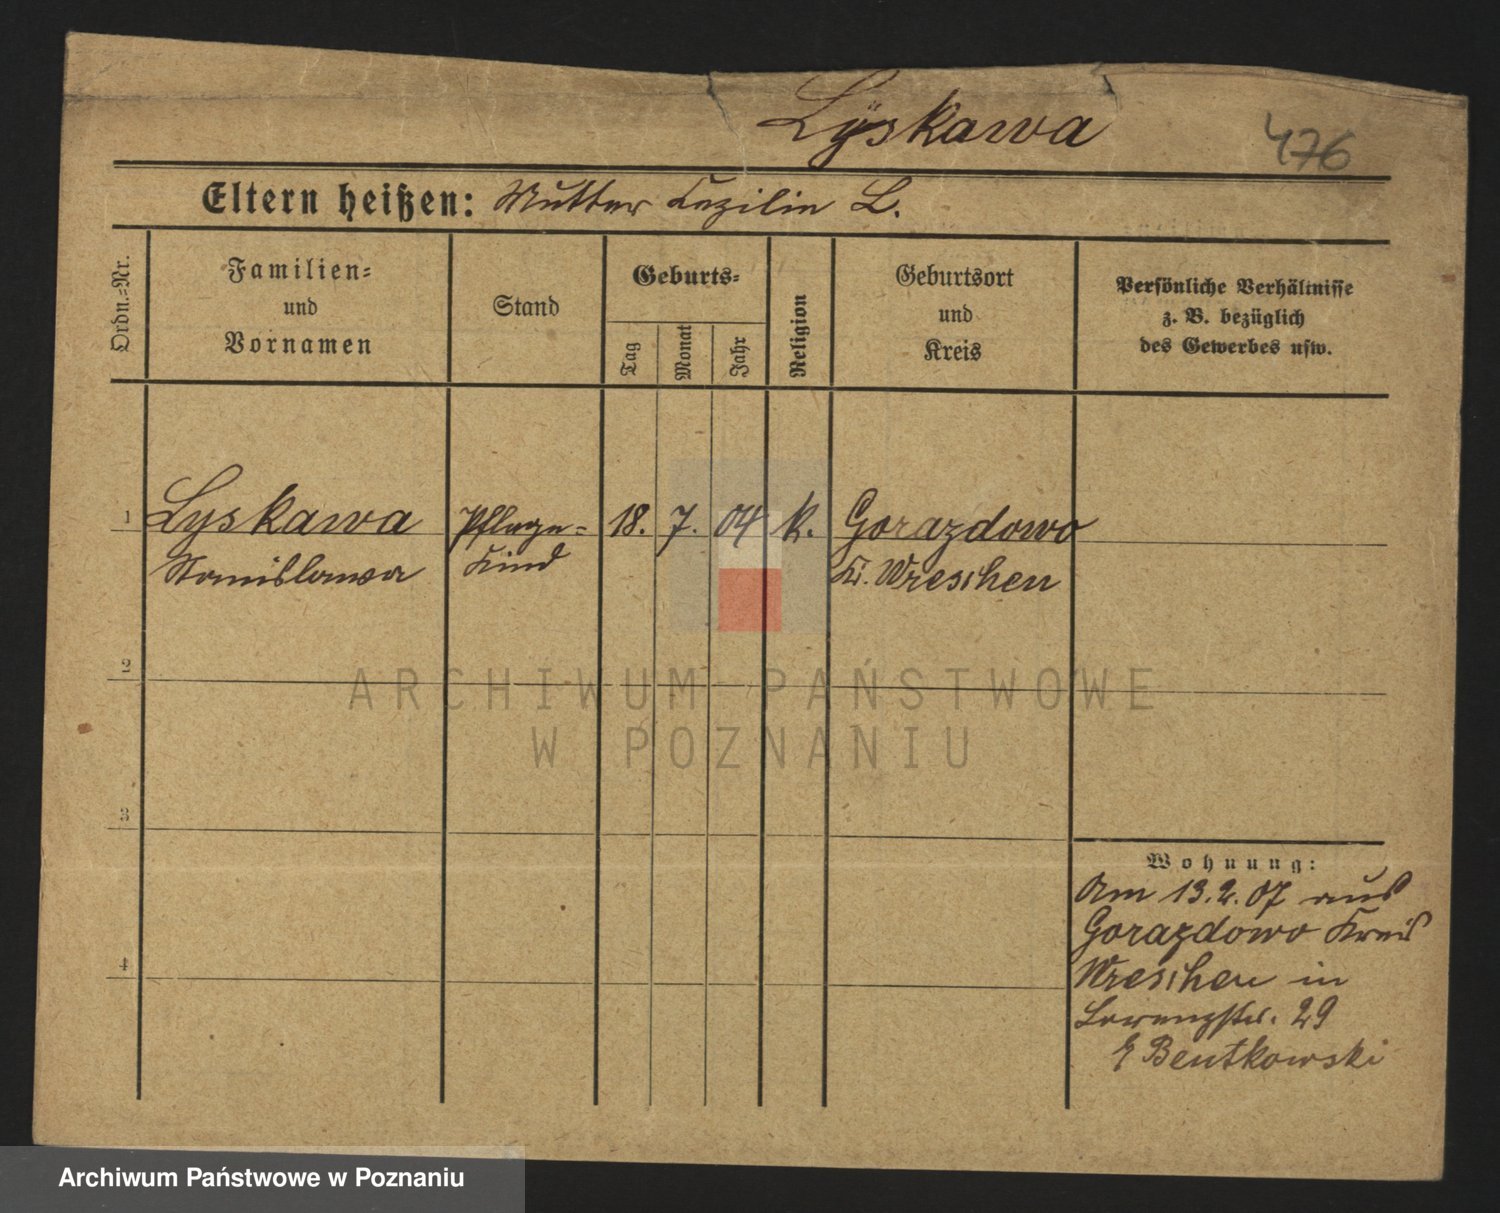 Lyskawa
476
Eltern heißen: Mutter Cezilie L.
Ordn.=Nr.
Familien=
und
Vornamen
Stand
Geburts=
Tag
Monat
Jahr
Religion
Geburtsort
und
Kreis
Persönliche Verhältnisse
z. B. bezüglich
des Gewerbes usw.
1 Lyskawa Pflege= 18. 7. 04 k. Gorazdowo
Stanislawa Kind Kr. Wreschen
2
ARCHIWUM PAŃSTWOWE
W POZNANIU
3
Wohnung:
Am 13.2.07 aus
Gorazdowo Kreis
4
Wreschen in
Lorenzstr. 29
Bentkowski
Archiwum Państwowe w Poznaniu